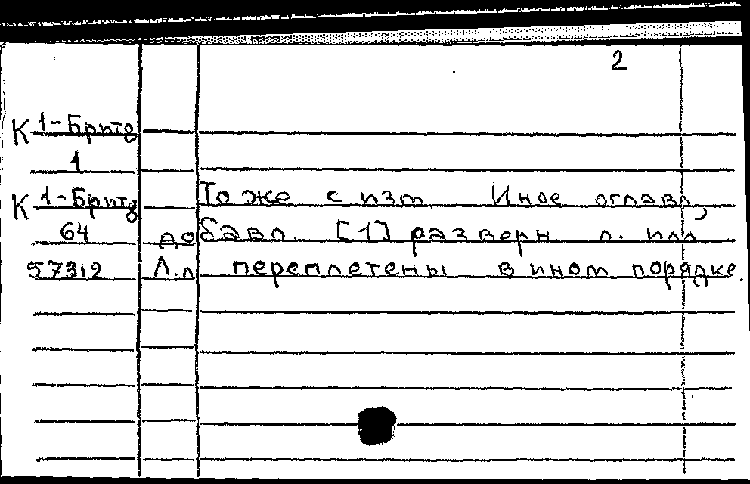 2
К 1-Брит8
1
К 1-Брит8 То же с изм Иное оглавл,
64 добавл. [1] разверн л. илл
5732 Л.л переплетены в ином порядке.